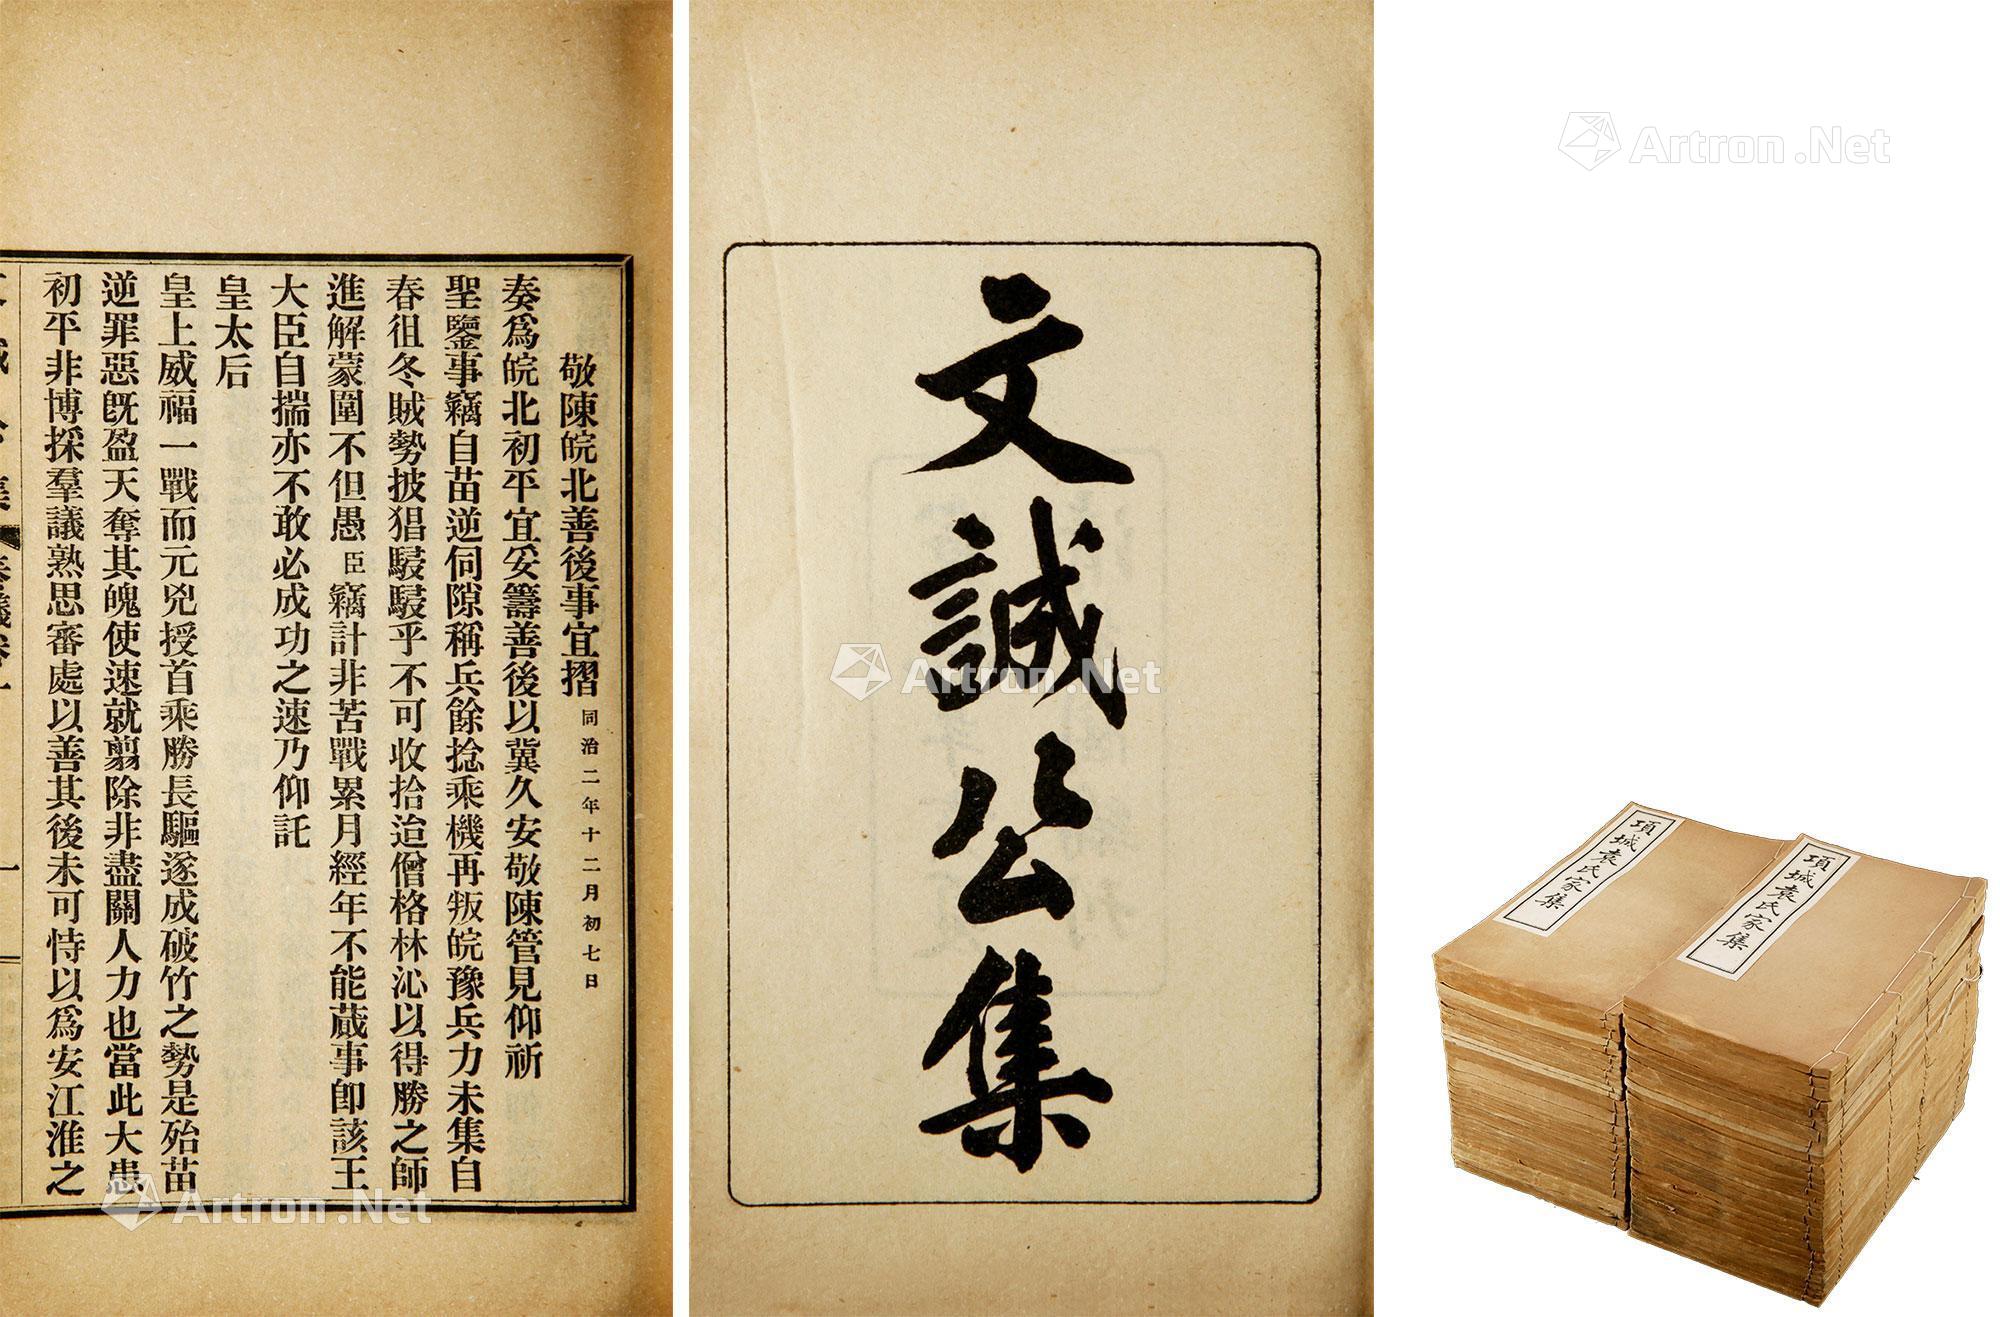 敬陳皖北善後事宜摺 同治二年十二月初七日
奏爲皖北初平宜妥籌善後以冀久安敬陳管見仰祈
聖鑒事竊自苗逆伺隙稱兵餘捻乘機再叛皖豫兵力未集自
春徂冬賊勢披猖駸駸乎不可收拾迨僧格林沁以得勝之師
進解蒙圍不但愚臣竊計非苦戰累月經年不能蕆事卽該王
大臣自揣亦不敢必成功之速乃仰託
皇太后
皇上威福一戰而元兇授首乘勝長驅遂成破竹之勢是殆苗
逆罪惡旣盈天奪其魄使速就翦除非盡關人力也當此大患
初平非博採羣議熟思審處以善其後未可恃以爲安江淮之
文誠公集
項城袁氏家集
項城袁氏家集
Artron.Net
Artron.Net
Artron.Net